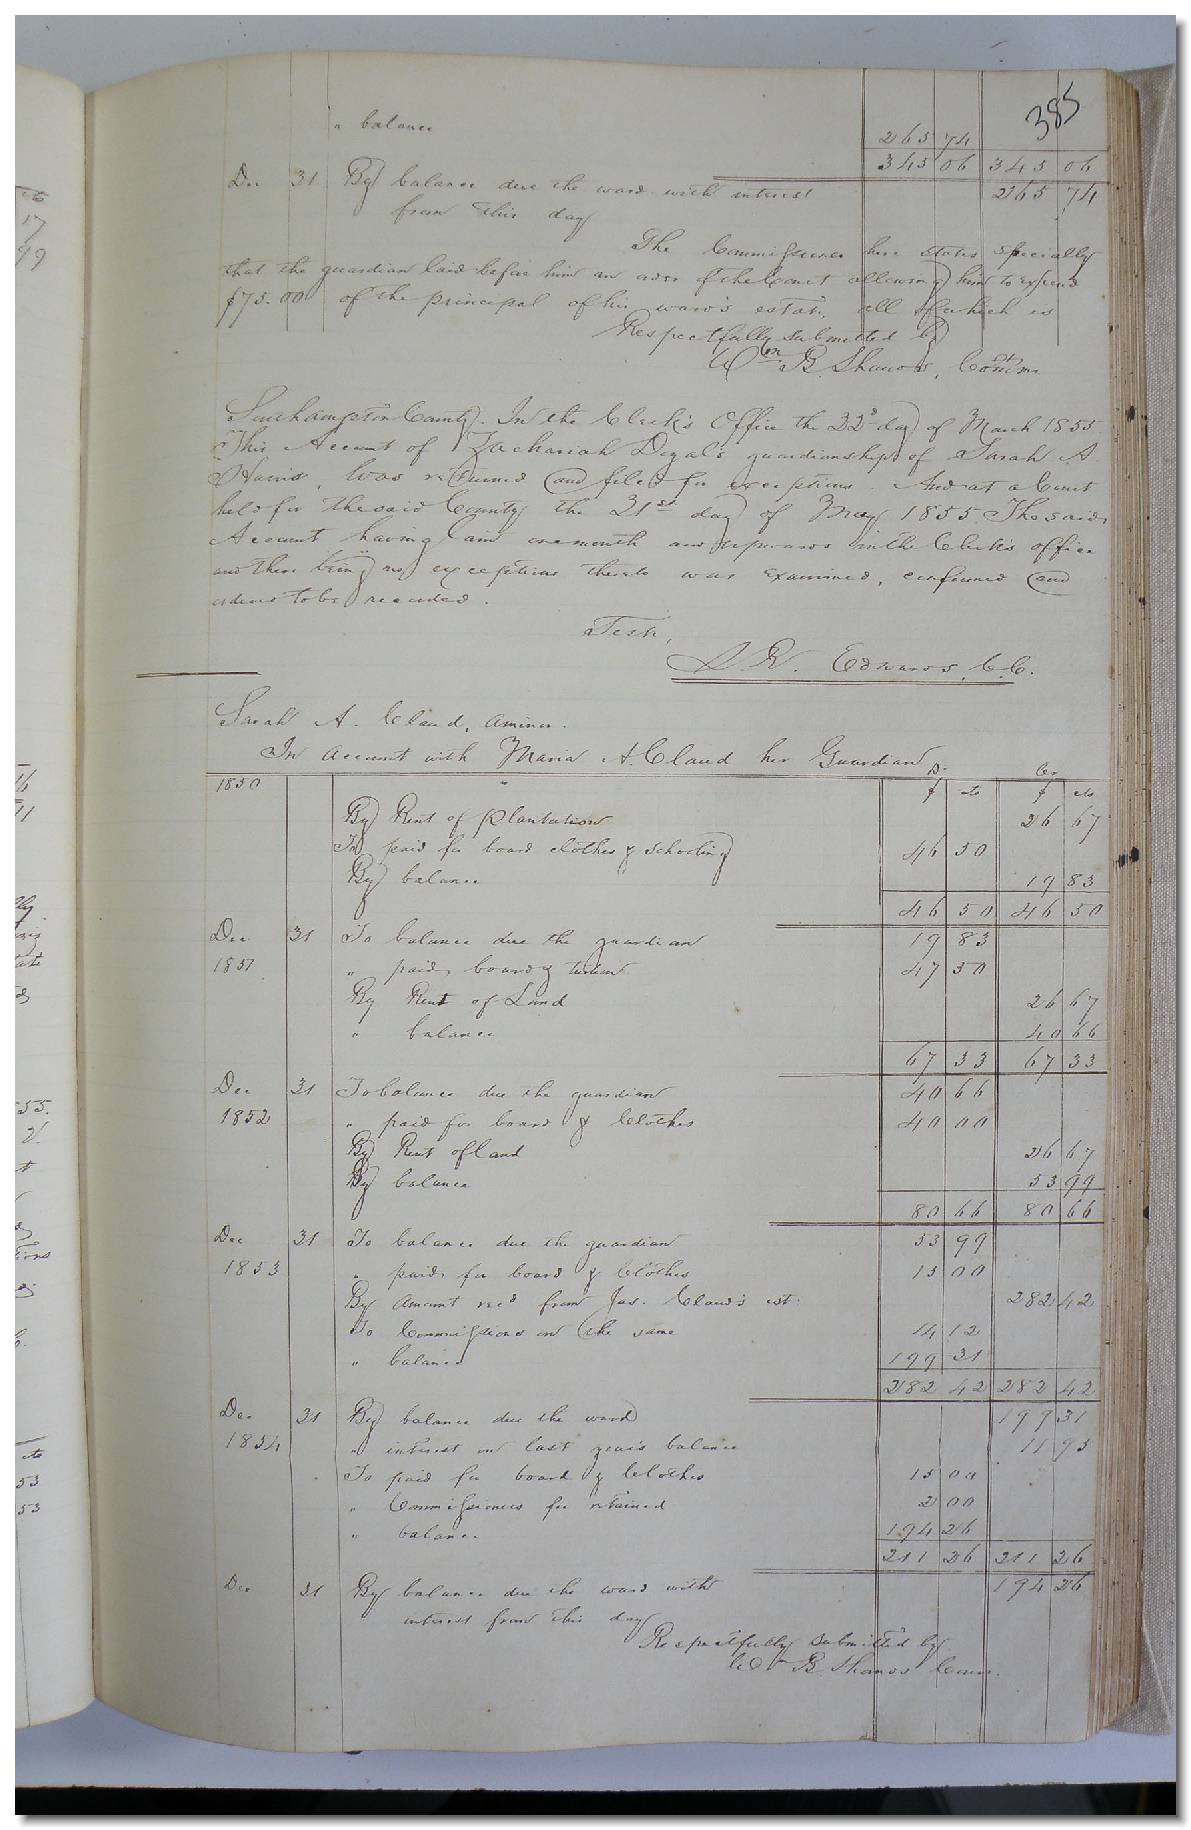 385
" balance 265 74
345 06 345 06
Dec 31 By balance due the ward with interest 265 74
from this day
The Commissioner here states specially
that the guardian laid before him an order of the Court allowing him to expend
$75.00 of the principal of his ward's estate, all of which is
Respectfully submitted by
Wm B. Shands, Comr
Southampton County. In the Clerk's Office the 22d day of March 1855.
This Account of Zachariah guardianship of Sarah A.
Harris, was returned and filed for exceptions. And at a Court
held for the said County the 21st day of May 1855. The said
Account having lain one month and upwards in the Clerk's office
and there being no exceptions thereto was examined, confirmed and
ordered to be recorded.
Teste,
L. R. Edwards, C.C.
Sarah A. Claud, a minor.
In Account with Maria A. Claud her Guardian
Dr. Cr
1850 $ cts $ cts
By Rent of Plantation 26 67
To paid for board clothes & schooling 46 50
By balance 19 83
46 50 46 50
Dec 31 To balance due the guardian 19 83
1851 " paid board & tuition 47 50
By Rent of Land 26 67
" balance 40 66
67 33 67 33
Dec 31 To balance due the guardian 40 66
1852 " paid for board & Clothes 40 00
By Rent of Land 26 67
By balance 53 99
80 66 80 66
Dec 31 To balance due the guardian 53 99
1853 " paid for board & Clothes 15 00
By Amount recd from Jas. Claud's est. 282 42
To Commissions on the same 14 12
" balance 199 31
282 42 282 42
Dec 31 By balance due the ward 199 31
1854 " interest on last year's balance 11 95
To paid for board & Clothes 15 00
" Commissioners fee retained 2 00
" balance 194 26
211 26 211 26
Dec 31 By balance due the ward with 194 26
interest from this day
Respectfully submitted by
Wm B Shands Comr.